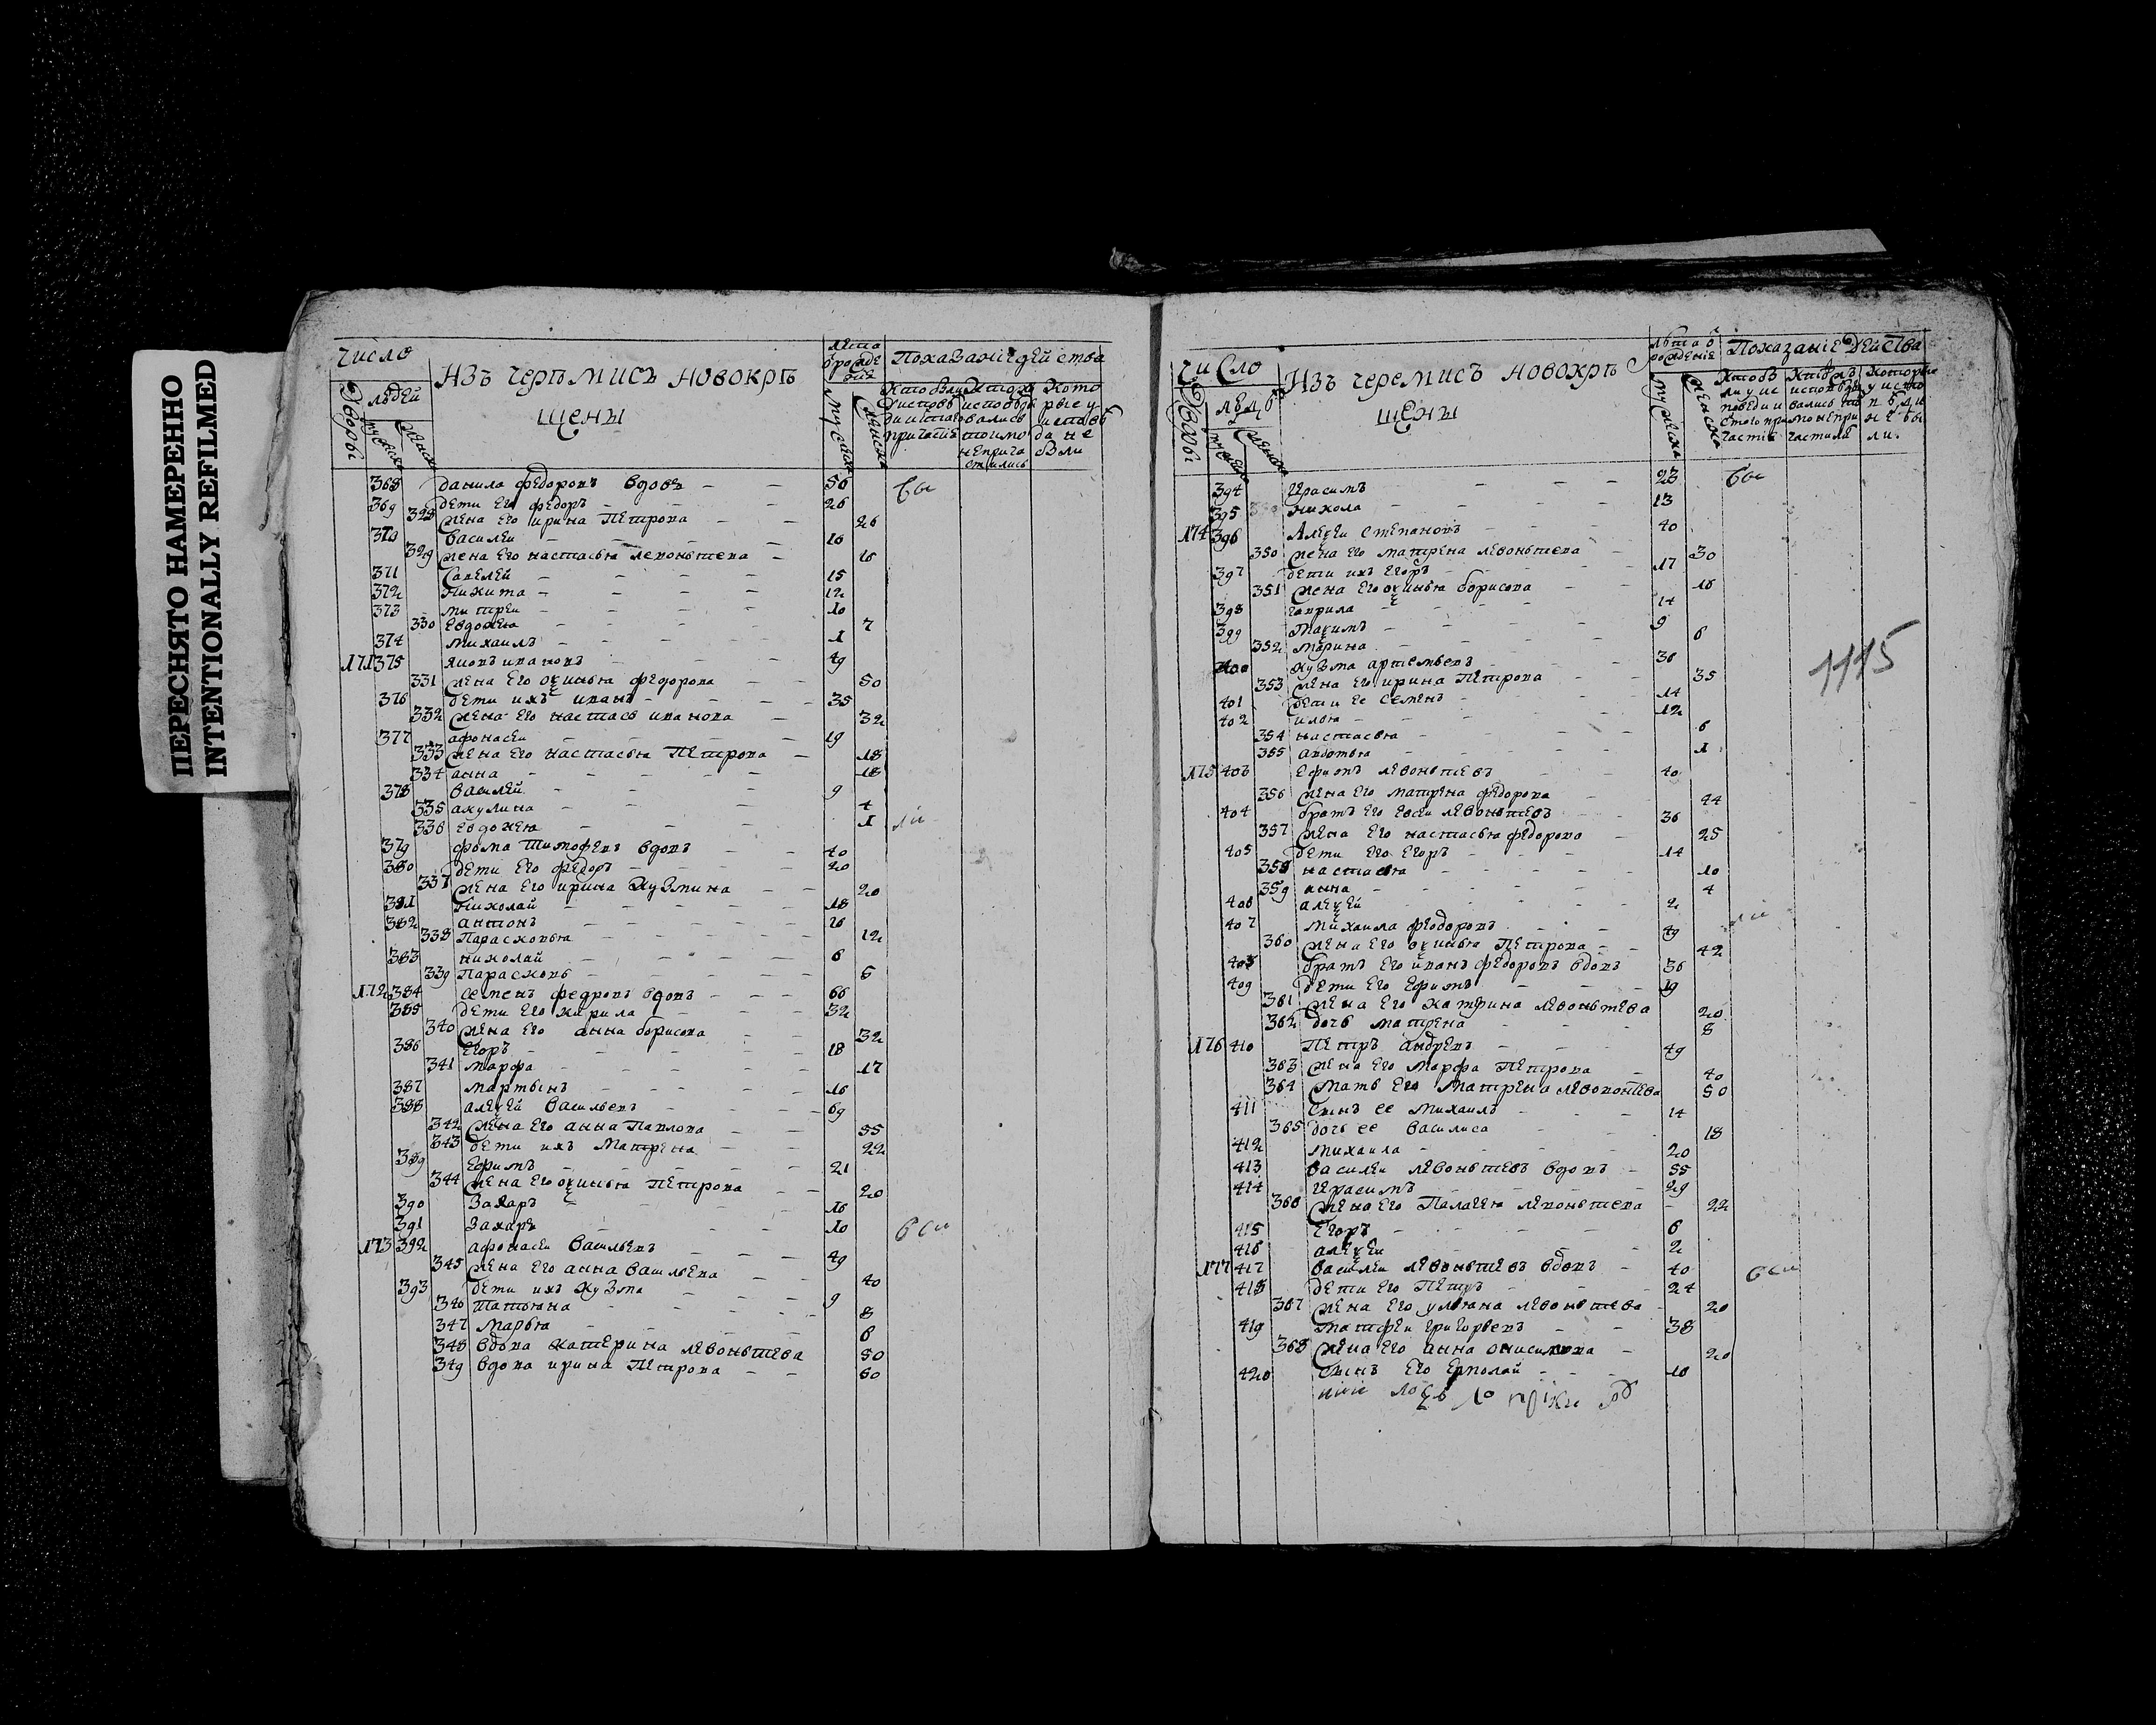 ПЕРЕСНЯТО НАМЕРЕННО
INTENTIONALLY REFILMED
число
людей
Дворовъ
Изъ черемисъ новокре
щены
Показание действа
368 данила федоровъ вдовъ 56 бы
369 дети его федоръ 26
328 жена его ирина петрова 26
370 василеи 16
329 жена его настасья левонтева 16
371 савелей 15
372 никита 12
373 митреи 10
330 евдокея 7
374 михаилъ 1
171 375 яковъ ивановъ 49
331 жена его оксинья федорова 50
376 дети ихъ иванъ 35
332 жена его настась иванова 32
377 афонасеи 19
333 жена его настасья петрова 18
334 анна 18
378 василей 9
335 акулина 4
336 евдокея 1 ли
379 фома тимофевъ вдовъ 40
380 дети его федоръ 20
337 жена его ирина кузмина 20
381 николай 18
382 антонъ 16
338 парасковья 12
383 николай 6
339 парасковь 6
172 384 семенъ федровъ вдовъ 66
385 дети его кирила 32
340 жена его анна борисова 32
386 егоръ 18
341 марфа 17
387 мартынъ 16
388 алексей васильевъ 69
342 жена его анна павлова 55
343 дети ихъ матрена 22
389 ефимъ 21
344 жена его оксинья петрова 20
390 захаръ 16
391 захаръ 10 бы
173 392 афонасеи васильевъ 49
345 жена его анна васильева 40
393 дети ихъ кузма 9
346 татьяна 8
347 марья 6
348 вдова катерина левоньтева 50
349 вдова ирина петрова 60
чиСло
Дворовъ
Изъ черемисъ новокре
щены
Показание Действа
394 герасимъ 23 бы
395 никола 13
174 396 алексеи степановъ 40
350 жена его матрена левоньтева 30
397 дети ихъ егоръ 17
351 жена его оксинья борисова 16
398 гаврила 14
399 максимъ 9
352 марина 6
400 кузма артемьевъ 36
353 жена его ирина петрова 35
401 дети ее семенъ 14
402 илья 12
354 настасья 6
355 авдотья 1
1115
175 403 ефимъ левоньтевъ 40
356 жена его матрена федорова 44
404 братъ его евсеи левоньтевъ 36
357 жена его настасья федорова 25
405 дети его егоръ 14
358 настасья 10
359 анна 4
406 алексей 2
407 михаила феодоровъ 49 ли
360 жена его оксинья петрова 42
408 братъ его иванъ федоровъ вдовъ 36
409 дети его ефимъ 19
361 жена его катерина левоньтева 20
362 дочь матрена 8
176 410 петръ андревъ 49
363 жена его марфа петрова 40
364 мать его матрена левонтева 50
411 сынъ ее михаилъ 14
365 дочь ее василиса 18
412 михаила 20
413 василеи левоньтевъ вдовъ 55
414 герасимъ 29
366 жена его палагея левоньтева 22
415 егоръ 6
416 алексеи 2
177 417 василеи левоньтевъ вдовъ 40 бы
418 дети его петръ 24
367 жена его ульяна левоньтева 20
419 матфеи григорьевъ 38
368 жена его анна онисимова 20
420 сынъ его ермолай 10